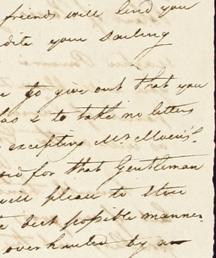 friends will lend you
your Sailing
to give out that you
has & to take no letters
excepting Mr.
for that Gentleman
will please to Stow
best possible manner
overhauled by a